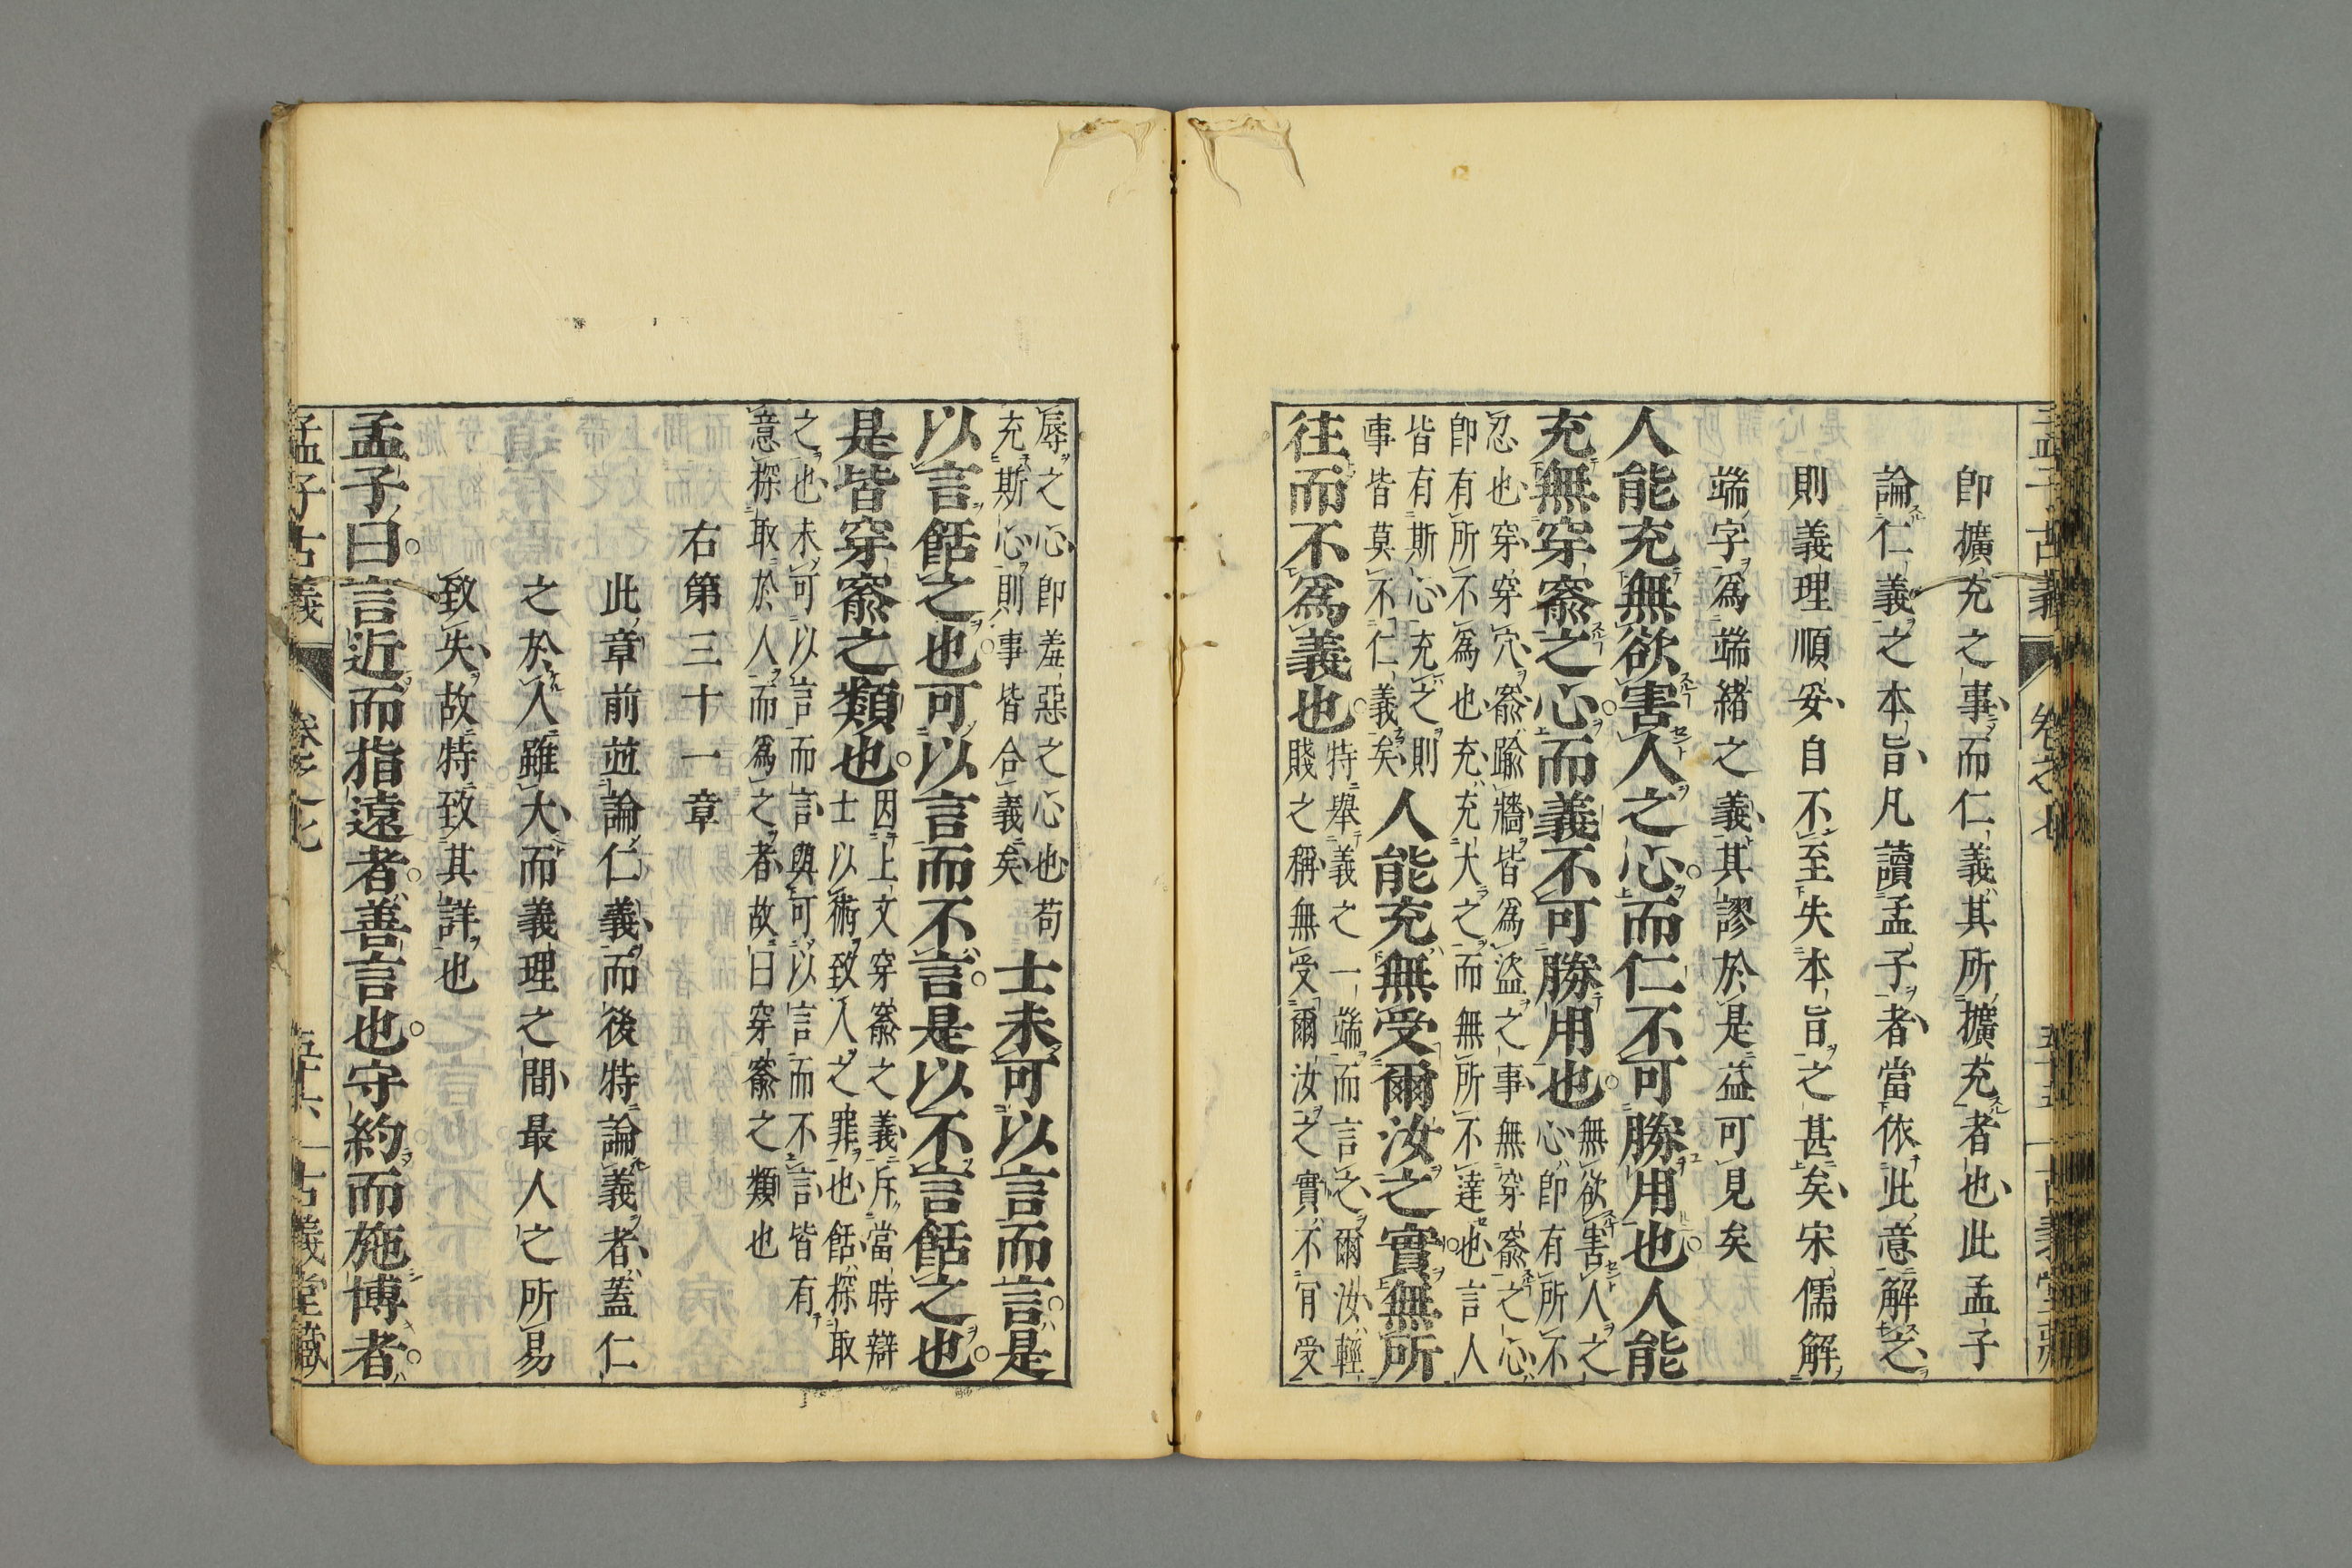 孟子古義 卷之七 五十五 古義堂藏
即擴充之事而仁義其所擴充者也此孟子
論仁義之本旨凡讀孟子者當依此意解之
則義理順妥自不至失本旨之甚矣宋儒解
端字爲端緒之義其謬於是益可見矣
人能充無欲害人之心而仁不可勝用也人能
充無穿窬之心而義不可勝用也
無欲害人之
心即有所不
忍也穿穿穴窬踰牆皆爲盜之事無穿窬之心
即有所不爲也充充大之而無所不達也言人
皆有斯心充之則
事皆莫不仁義矣
人能充無受爾汝之實無所
往而不爲義也
特舉義之一端而言之爾汝輕
賤之稱無受爾汝之實不肯受
辱之心即羞惡之心也苟
充斯心則事皆合義矣
士未可以言而言是
以言餂之也可以言而不言是以不言餂之也
是皆穿窬之類也
因上文穿窬之義斥當時辯
士以術致人之罪也餂探取
之也未可以言而言與可以言而不言皆有
意探取於人而爲之者故曰穿窬之類也
右第三十一章
此章前並論仁義而後特論義者蓋仁
之於人雖大而義理之間最人之所易
致失故特致其詳也
孟子曰言近而指遠者善言也守約而施博者
孟子古義 卷之七 五十六 古義堂藏